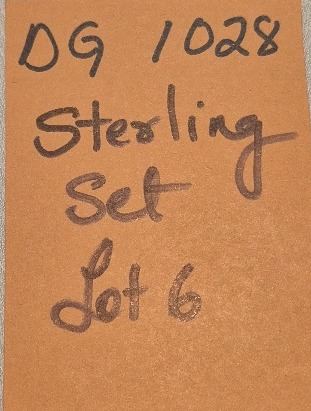 DG 1028
Sterling
Set
Lot 6